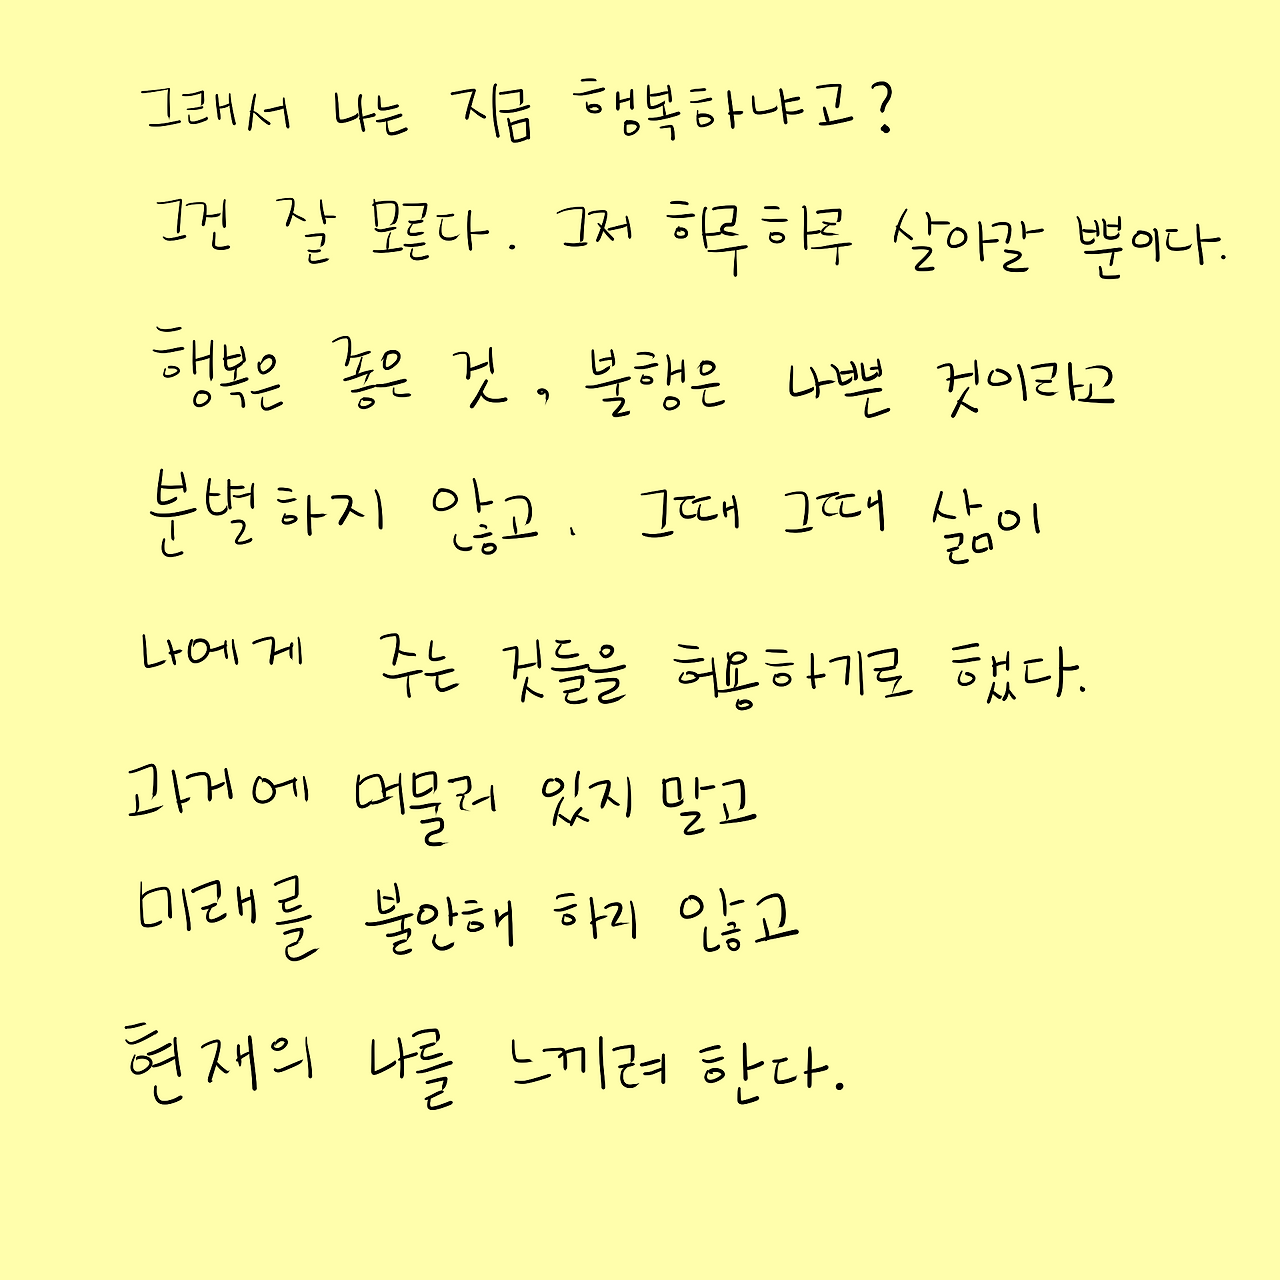 그래서 나는 지금 행복하냐고?
그건 잘 모른다. 그저 하루하루 살아갈 뿐이다.
행복은 좋은 것, 불행은 나쁜 것이라고
분별하지 않고. 그때 그때 삶이
나에게 주는 것들을 허용하기로 했다.
과거에 머물러 있지 말고
미래를 불안해 하리 않고
현재의 나를 느끼려 한다.